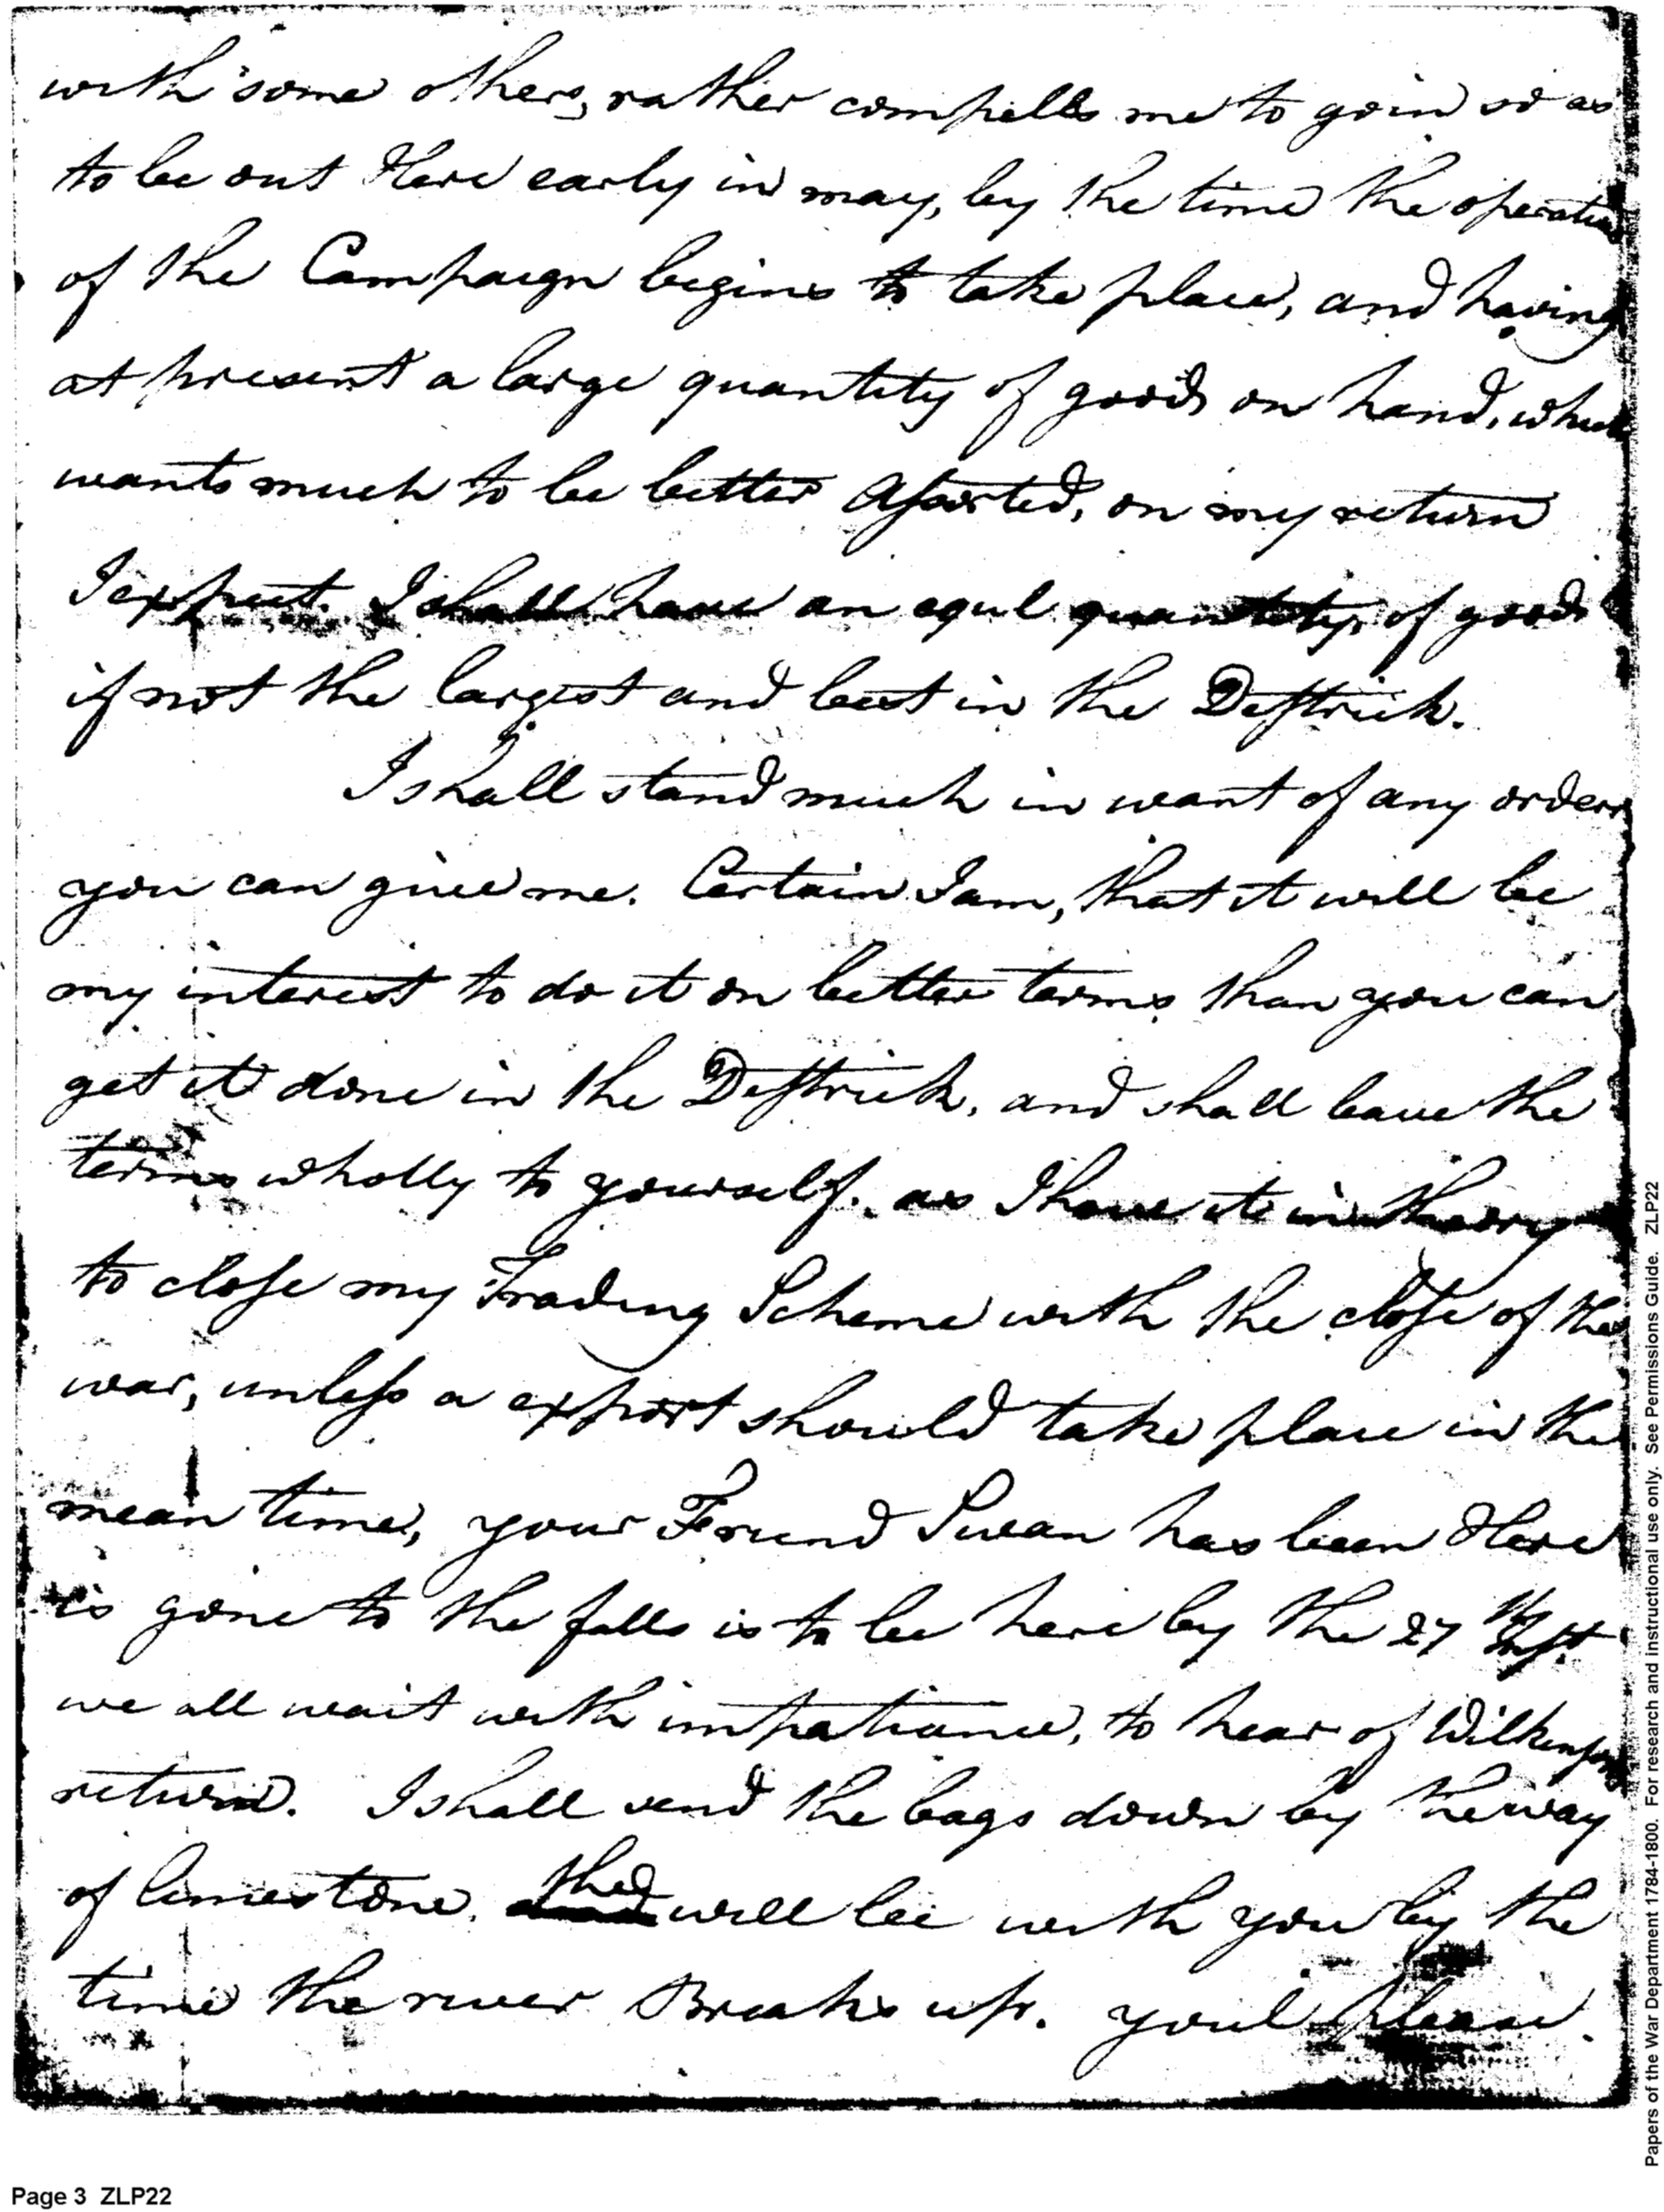 with some others, rather compells me to go in so as
to be out Here early in may, by the time the operations
of the Campaign begins to take place, and having
at present a large quantity of goods on hand, which
wants much to be better Assorted, on my return
I expect. I shall have an equl quantity, of goods
if not the largest and best in the Destrick.
I shall stand much in want of any orders
you can give me. Certain I am, that it will be
my interest to do it on better terms than you can
get it done in the Destrick, and shall leave the
terms wholly to yourself. as I have it in theory
to close my Trading Scheme with the close of the
war, unless a export should take place in the
mean time, your Friend Swan has been Here
is gone to the falls is to be here by the 27th Inst.
we all wait with impatiance, to hear of Wilkinsons
return. I shall send the bags down by the way
of limestone. they will be with you by the
time the river Breaks up. youl please
Page 3 ZLP22
Papers of the War Department 1784-1800. For research and instructional use only. See Permissions Guide. ZLP22